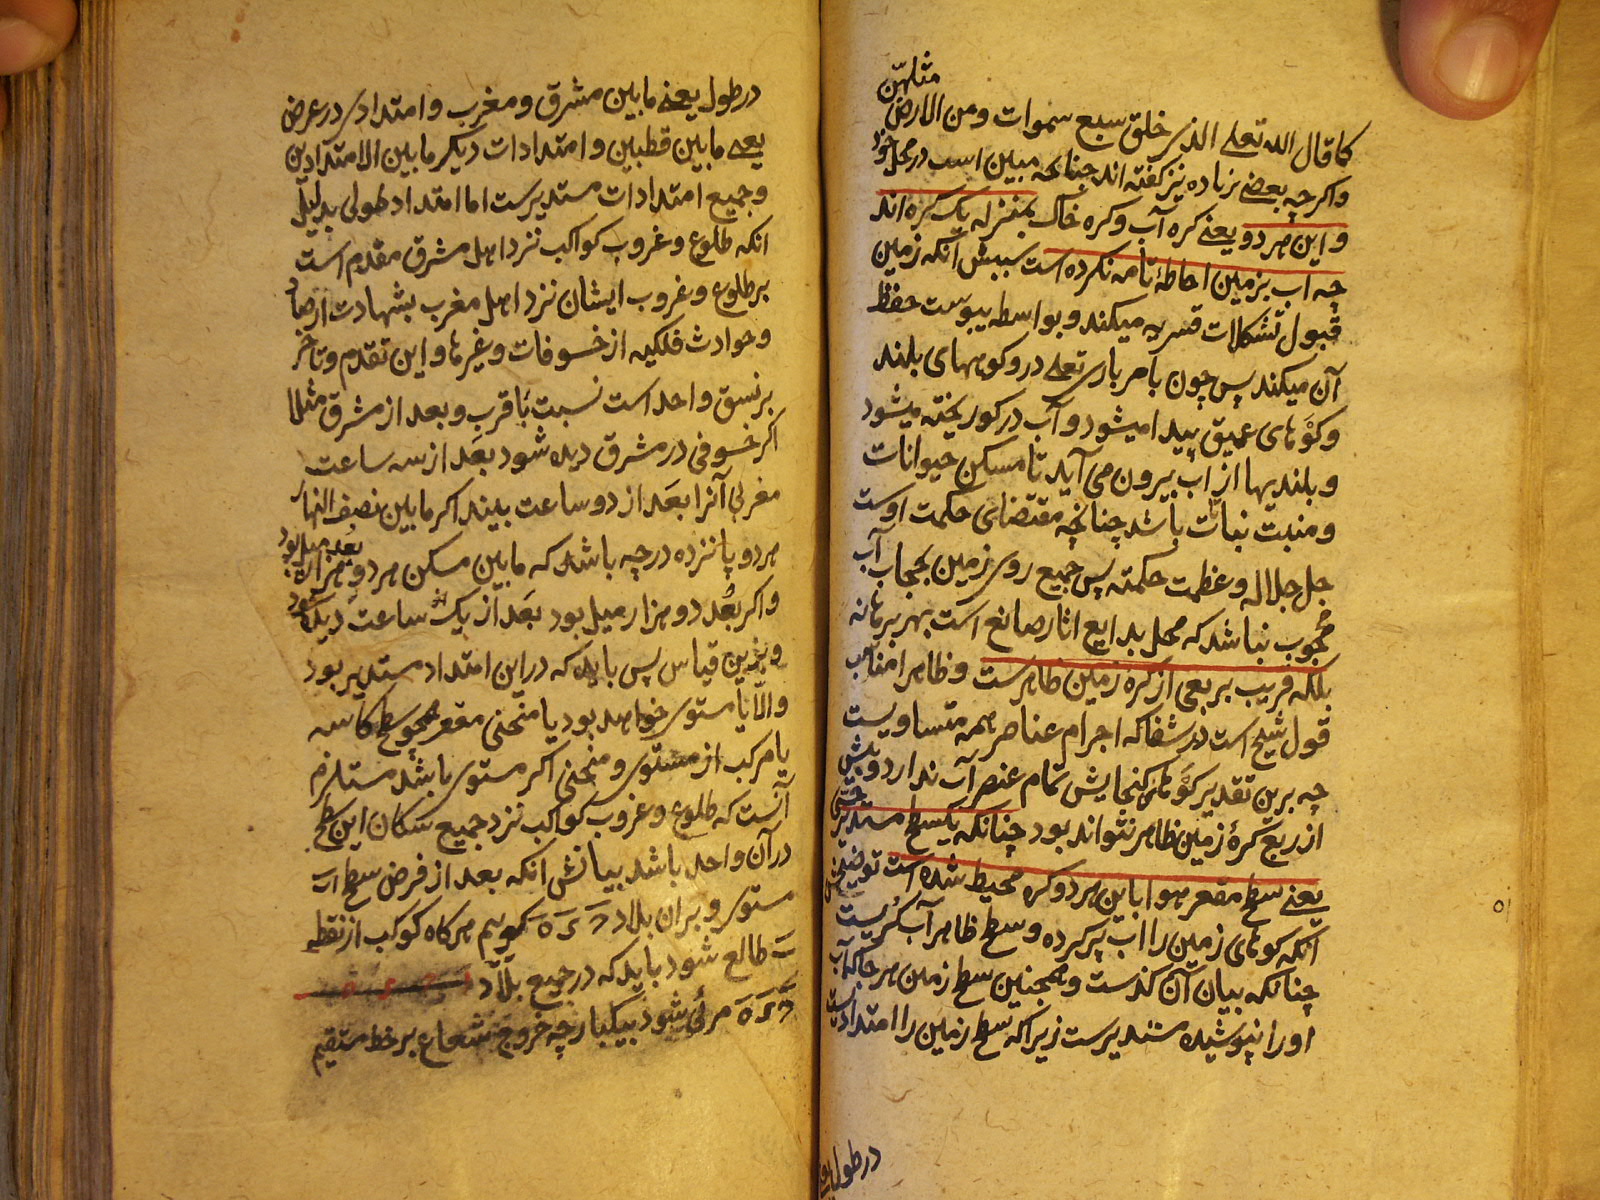 مثلهنّ
کما قال الله تعلی الذی خلق سبع سموات ومن الارض
واکرچه بعضی زیاده نیز کفته اند چنانچه مبین است در محل خود
و این هر دو یعنے کره آب وکره خاک بمنزله یک کره اند
چه اب بزمین احاطهٔ تامه نکرده است سببش آنکه زمین
قبول تشکلات قسریه میکند و بواسطه یبوست حفظ
آن میکند پس چون بامر باری تعلی درو کوههای بلند
وکوهای عمیق پیدا میشود و آب در کو ریخته میشود
و بلندیها از اب بیرون می آید تا مسکن حیوانات
و منبت نبات باشد چنانچه مقتضای حکمت اوست
جل جلاله وعظمت حکمته پس جمیع روی زمین بحجاب آب
محجوب نباشد که محل بدایع اثار صانع است بهر برهانه
بلکه قریب بربعی از کره زمین ظاهرست و ظاهرا مناسب
قول شیخ است در شفا که اجرام عناصر همه متساویست
چه برین تقدیر کوهای کنجایش تمام عنصر آب ندارد و بیش
از ربع کرهٔ زمین ظاهر نتواند بود چنانکه یکسطح مستدیر حسّی
یعنے سطح مقعر هوا باین هر دو کره محیط شده است توضیحش
آنکه کوهای زمین را اب پر کرده و سطح ظاهر آب کُریست
چنانکه بیان آن کذست و همچنین سطح زمین هر جا که آب
اورا نپوشیده مستدیرست زیراکه سطح زمین را امتدادیست
در طول یعنے
در طول یعنے مابین مشرق و مغرب و امتدادی در عرض
یعنے مابین قطبین و امتدادات دیکر مابین الامتدادین
و جمیع امتدادات مستدیرست اما امتداد طولی بدلیل
انکه طلوع و غروب کواکب نزد اهل مشرق مقدم است
بر طلوع و غروب ایشان نزد اهل مغرب بشهادت ارصاد
و حوادث فلکیه از خسوفات و غیرها و این تقدم و تاخر
بر نسق واحد است نسبت با قرب و بعد از مشرق مثلا
اکر خسوفی در مشرق دیده شود بَعد از سه ساعت
مغربی آنرا بعَد از دو ساعت بیند اکر مابین نصف النهار
هر دو پانزده درجه باشد که مابین مسکن هر دو هزار بعَد میل بود
و اکر بعُد دو هزار میل بود بعَد از یک ساعت دیده شود
و بَرین قیاس پس باید که در این امتداد مستدیر بود
والّا یا مستوی خواهد بود یا منحنی مقعر همچو سطح کاسه
یا مرکب از مستوی و منحنی اکر مستوی باشد مستلزم
آنست که طلوع و غروب کواکب نزد جمیع سکان این سطح
در آن واحد باشد بیانش انکه بعد از فرض سطح اب
مستوی و بران بلاد کوییم هرکاه کوکب از نقطه
طالع شود باید که در جمیع بلاد
مرئی شود بیکبار چه خروج شعاع بر خط مستقیم